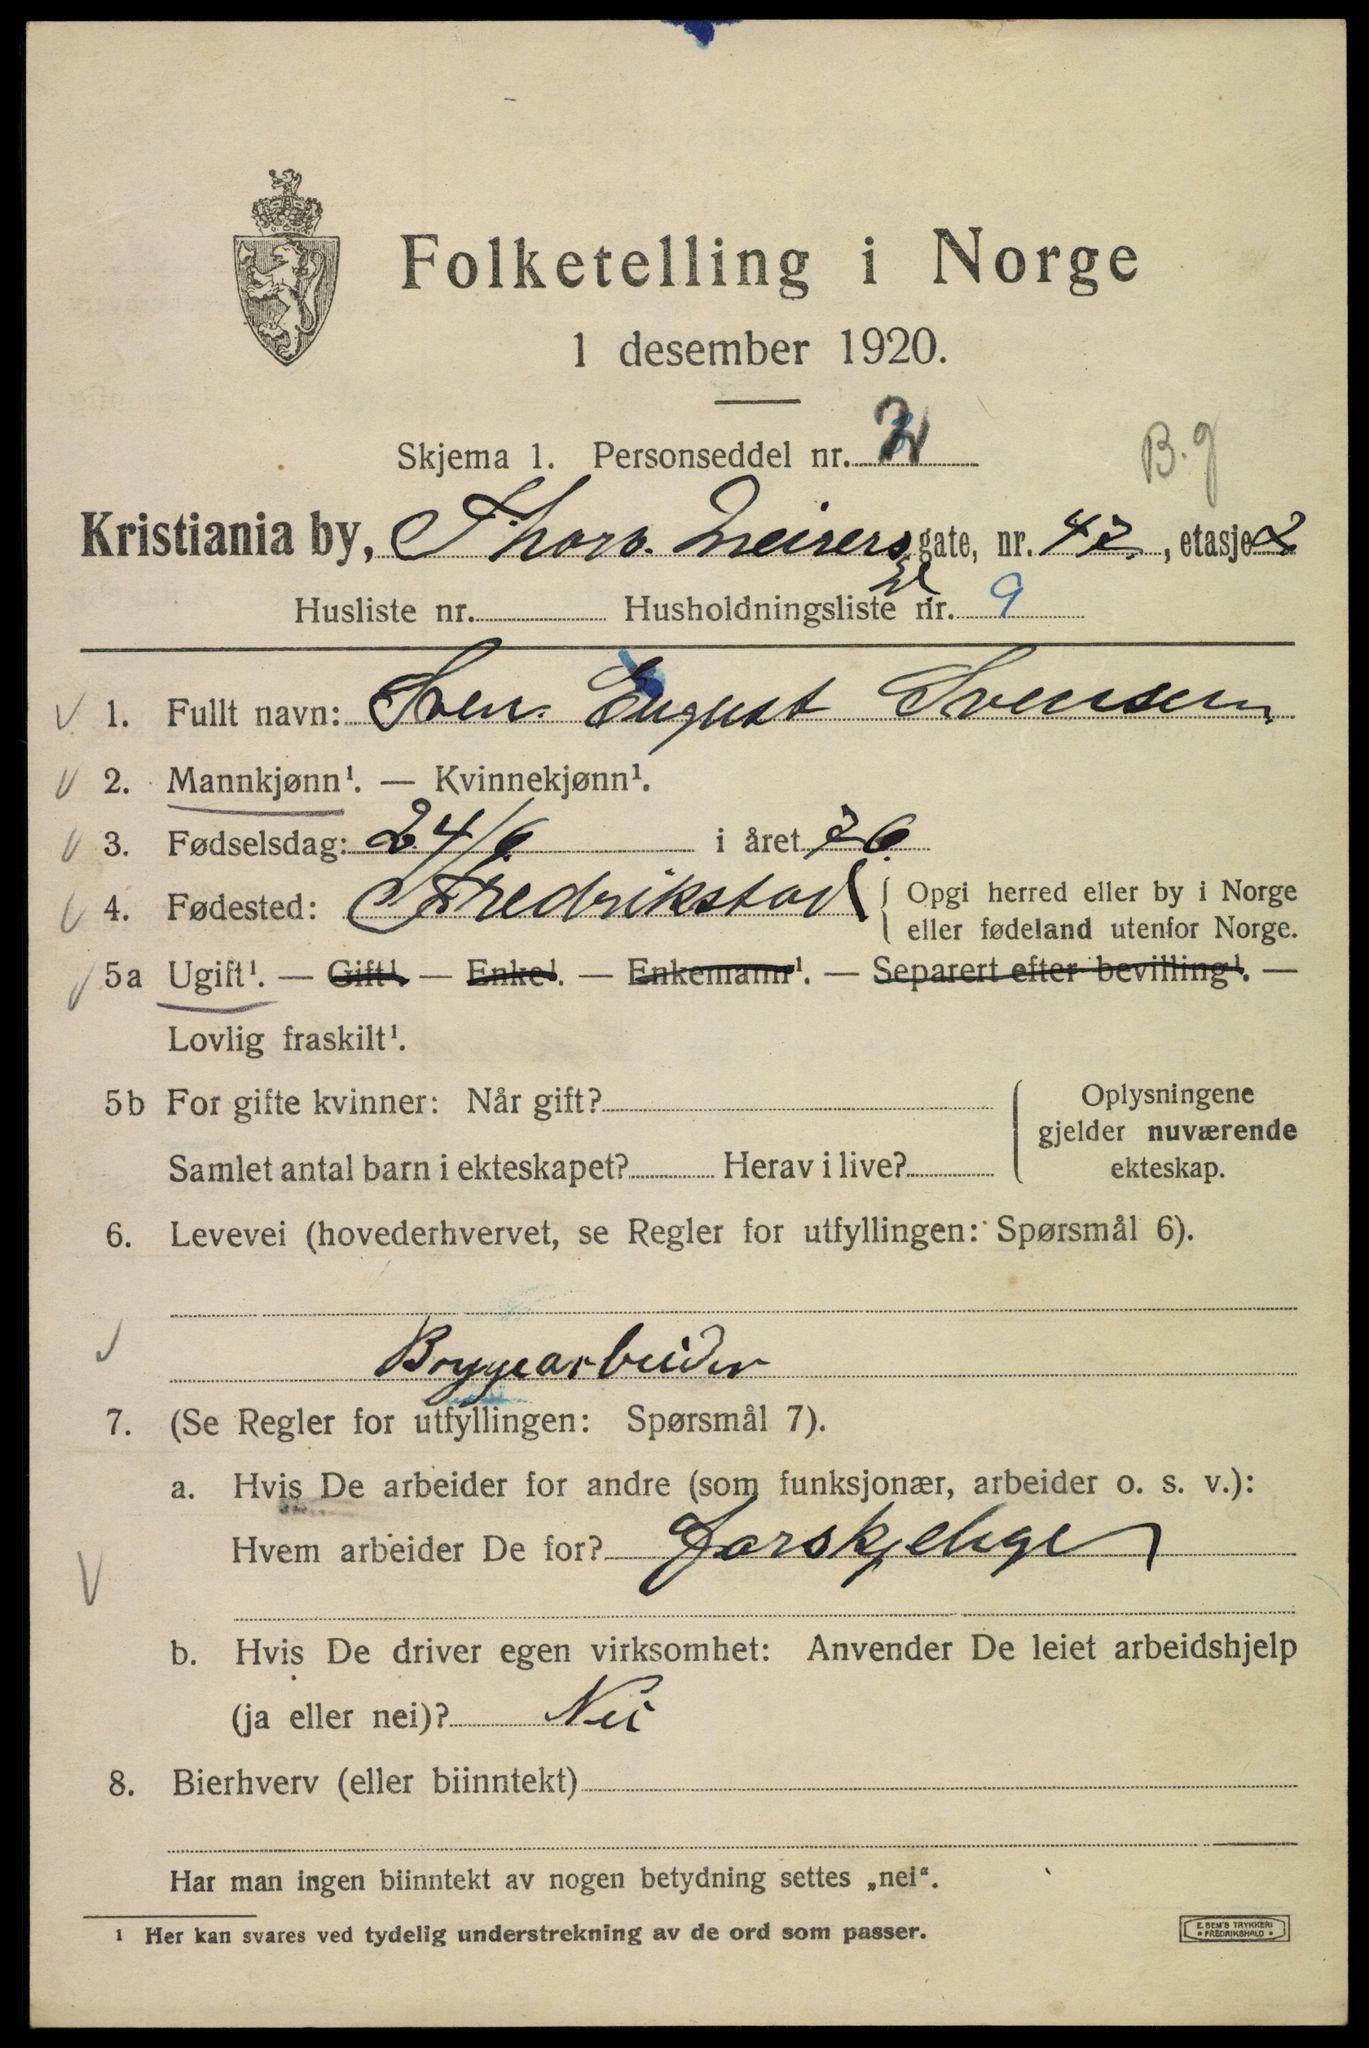 Folketelling i Norge
1 desember 1920.
Skjema 1. Personseddel nr.
B.g
Kristiania by, Thorv. Meiers gate, nr. 42, etasje 2
Husliste nr. Husholdningsliste nr. 9
1. Fullt navn: Sven August Svensen
2. Mannkjønn¹. — Kvinnekjønn¹.
3. Fødselsdag: 24/6 i året 76
4. Fødested: Fredrikstad { Opgi herred eller by i Norge
eller fødeland utenfor Norge.
5a Ugift¹. — Gift¹. — Enke¹. — Enkemann¹. — Separert efter bevilling¹. —
Lovlig fraskilt¹.
5b For gifte kvinner: Når gift?
Samlet antal barn i ekteskapet? Herav i live?
Oplysningene
gjelder nuværende
ekteskap.
6. Levevei (hovederhvervet, se Regler for utfyllingen: Spørsmål 6).
Bryggearbeider
7. (Se Regler for utfyllingen: Spørsmål 7).
a. Hvis De arbeider for andre (som funksjonær, arbeider o. s. v.):
Hvem arbeider De for? Forskjelige
b. Hvis De driver egen virksomhet: Anvender De leiet arbeidshjelp
(ja eller nei)? Nei
8. Bierhverv (eller biinntekt)
Har man ingen biinntekt av nogen betydning settes „nei“.
¹ Her kan svares ved tydelig understrekning av de ord som passer.
E. SEM'S TRYKKERI
• FREDRIKSHALD •